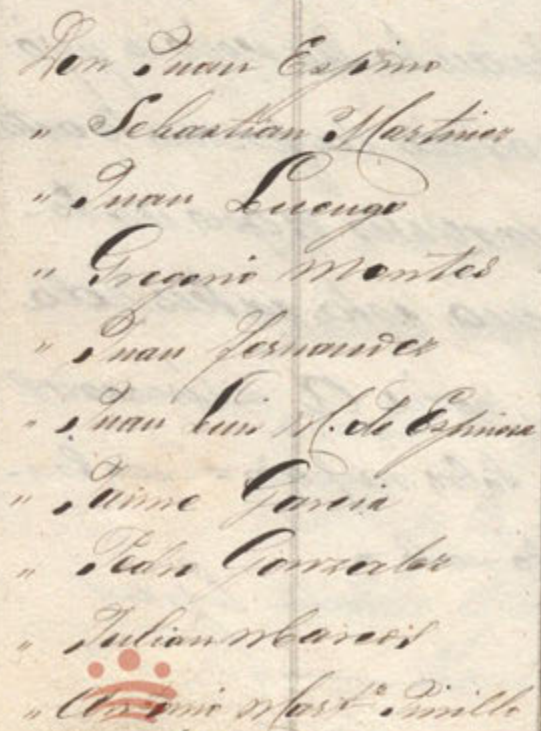 Don Juan Espino
" Sebastian Martinez
" Juan Luengo
" Gregorio Montes
" Juan Fernandez
" Juan Luis M. de Espinosa
" Jaime Garcia
" Pedro Gonzalez
" Julian Marcos
" Antonio Mart.º Pinillo